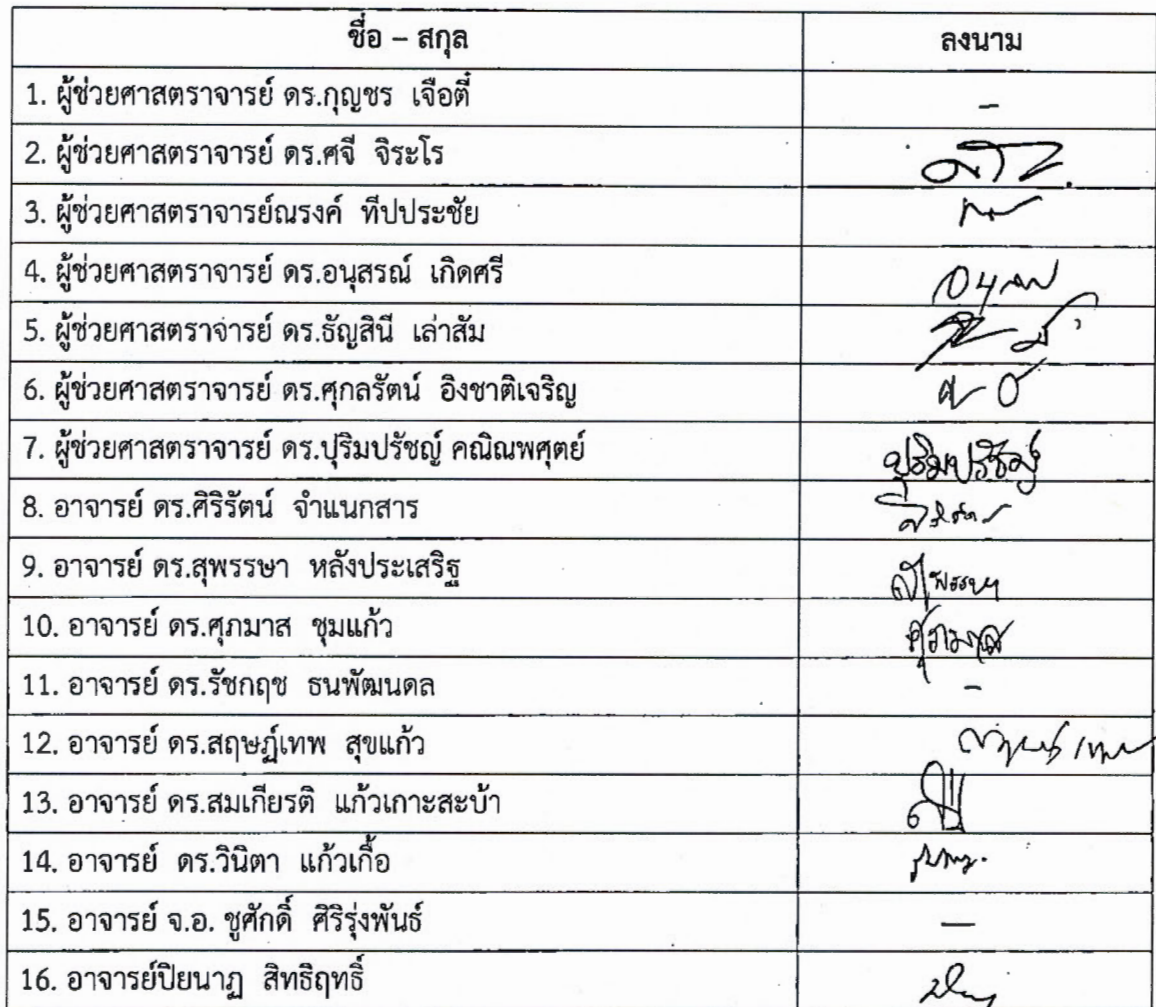 ชื่อ – สกุล ลงนาม
1. ผู้ช่วยศาสตราจารย์ ดร.กุญชร เจือตี๋ –
2. ผู้ช่วยศาสตราจารย์ ดร.ศจี จิระโร
3. ผู้ช่วยศาสตราจารย์ณรงค์ ทีปประชัย
4. ผู้ช่วยศาสตราจารย์ ดร.อนุสรณ์ เกิดศรี
5. ผู้ช่วยศาสตราจารย์ ดร.ธัญสินี เล่าสัม
6. ผู้ช่วยศาสตราจารย์ ดร.ศุกลรัตน์ อิงชาติเจริญ
7. ผู้ช่วยศาสตราจารย์ ดร.ปุริมปรัชญ์ คณิณพศุตย์ ปุริมปรัชญ์
8. อาจารย์ ดร.ศิริรัตน์ จำแนกสาร
9. อาจารย์ ดร.สุพรรษา หลังประเสริฐ สุพรรษา
10. อาจารย์ ดร.ศุภมาส ชุมแก้ว ศุภมาส
11. อาจารย์ ดร.รัชกฤช ธนพัฒนดล –
12. อาจารย์ ดร.สฤษฏ์เทพ สุขแก้ว
13. อาจารย์ ดร.สมเกียรติ แก้วเกาะสะบ้า
14. อาจารย์ ดร.วินิตา แก้วเกื้อ
15. อาจารย์ จ.อ. ชูศักดิ์ ศิริรุ่งพันธ์ –
16. อาจารย์ปิยนาฏ สิทธิฤทธิ์